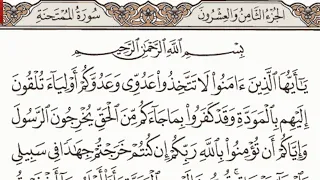 الجزء الثامن والعشرون
سورة الممتحنة
بِسْمِ ٱللَّهِ ٱلرَّحْمَٰنِ ٱلرَّحِيمِ
يَٰٓأَيُّهَا ٱلَّذِينَ ءَامَنُوا۟ لَا تَتَّخِذُوا۟ عَدُوِّى وَعَدُوَّكُمْ أَوْلِيَآءَ تُلْقُونَ
إِلَيْهِم بِٱلْمَوَدَّةِ وَقَدْ كَفَرُوا۟ بِمَا جَآءَكُم مِّنَ ٱلْحَقِّ يُخْرِجُونَ ٱلرَّسُولَ
وَإِيَّاكُمْ أَن تُؤْمِنُوا۟ بِٱللَّهِ رَبِّكُمْ إِن كُنتُمْ خَرَجْتُمْ جِهَٰدًا فِى سَبِيلِى